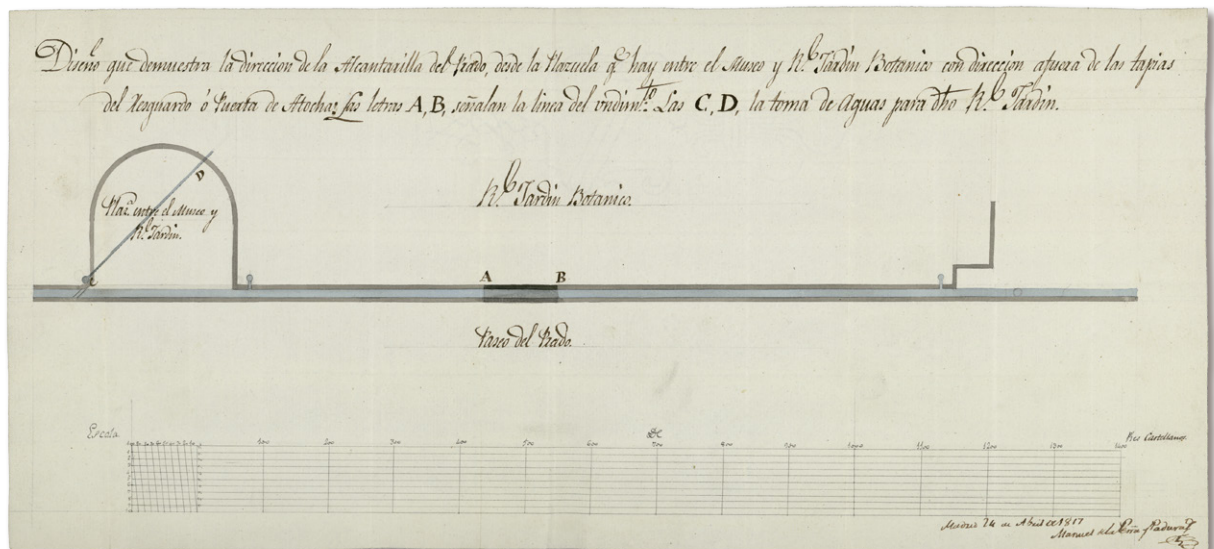 Diseño que demuestra la direccion de la Alcantarilla del Prado, desde la Plazuela q.e hay entre el Museo y R.l Jardin Botanico con direccion afuera de las tapias
del Resguardo ó Puerta de Atocha: Las letras A, B, señalan la linea del undim.to Las C, D, la toma de Aguas para dho R.l Jardin.
D
Plaz.a entre el Museo y
R.l Jardin.
R.l Jardin Botanico.
C
A B
Paseo del Prado.
Escala De Pies Castellanos.
100 200 300 400 500 600 700 800 900 1000 1100 1200 1300 1400
Madrid 24 de Abril de 1817
Manuel de la Peña y Padura